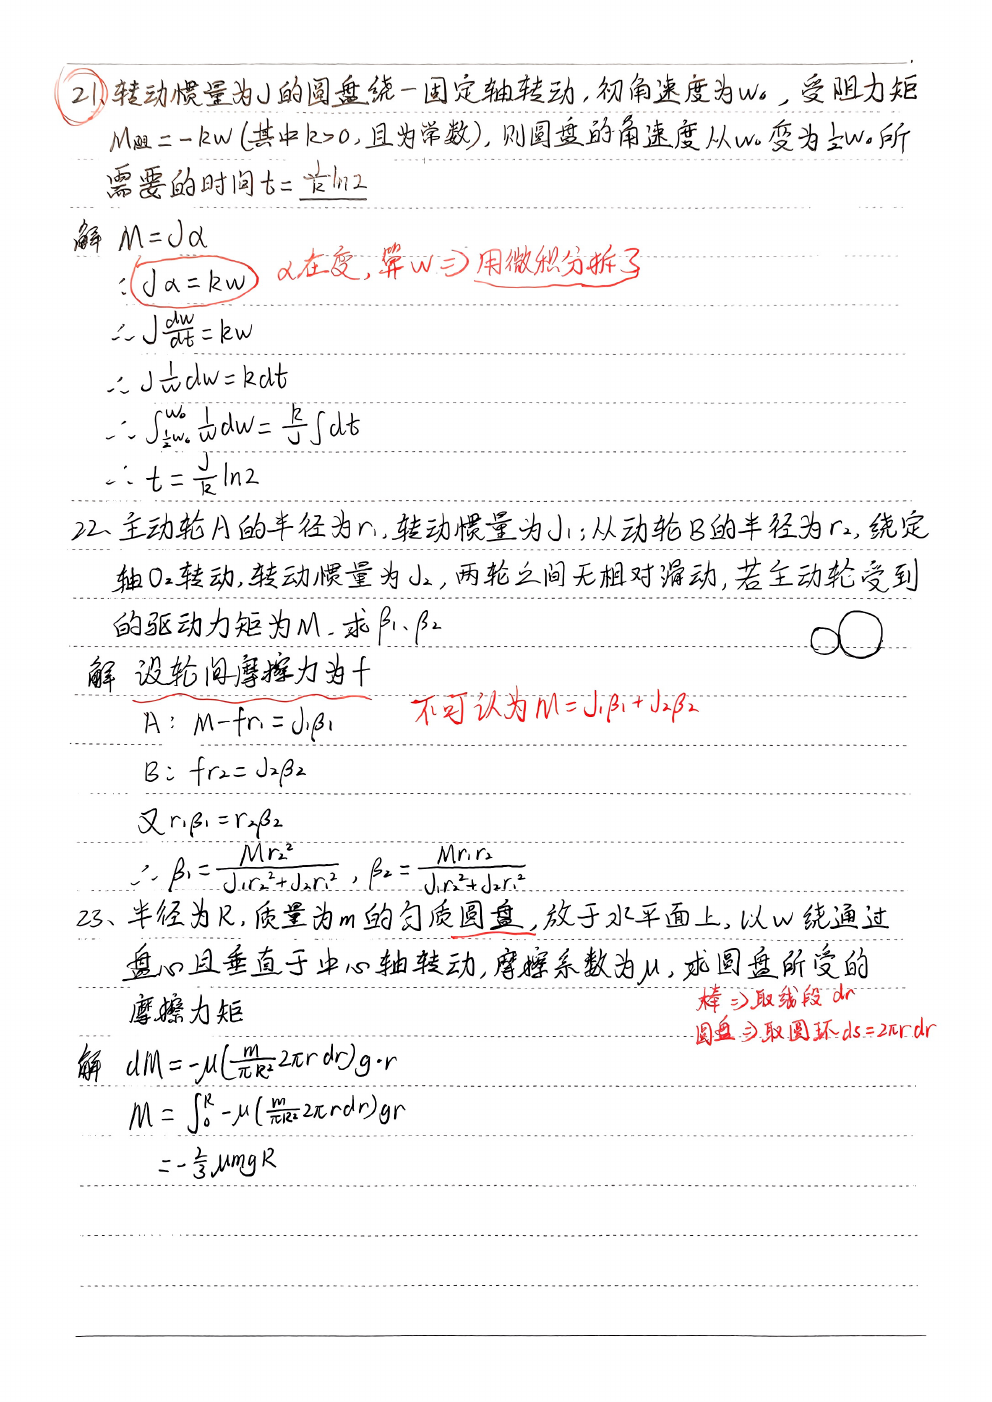 21、转动惯量为J的圆盘绕一固定轴转动,初角速度为w₀,受阻力矩
M阻=-kw(其中k>0,且为常数),则圆盘的角速度从w₀变为½w₀所
需要的时间t=J/k ln2
解 M=Jα
∵Jα=kw α在变,算w⇒用微积分拆了
∴J dw/dt=kw
∴J 1/w dw=kdt
∴∫_{½w₀}^{w₀} 1/w dw=k/J∫dt
∴t=J/k ln2
22、主动轮A的半径为r₁,转动惯量为J₁;从动轮B的半径为r₂,绕定
轴O₂转动,转动惯量为J₂,两轮之间无相对滑动,若主动轮受到
的驱动力矩为M.求β₁、β₂
解 设轮间摩擦力为f
A: M-fr₁=J₁β₁ 不可认为M=J₁β₁+J₂β₂
B: fr₂=J₂β₂
又r₁β₁=r₂β₂
∴β₁=Mr₂²/(J₁r₂²+J₂r₁²),β₂=Mr₁r₂/(J₁r₂²+J₂r₁²)
23、半径为R,质量为m的匀质圆盘,放于水平面上,以w绕通过
盘心且垂直于中心轴转动,摩擦系数为μ,求圆盘所受的
摩擦力矩
棒⇒取线段dr
圆盘⇒取圆环ds=2πrdr
解 dM=-μ(m/πR² 2πrdr)g·r
M=∫₀^R -μ(m/πR² 2πrdr)gr
=-⅔μmgR